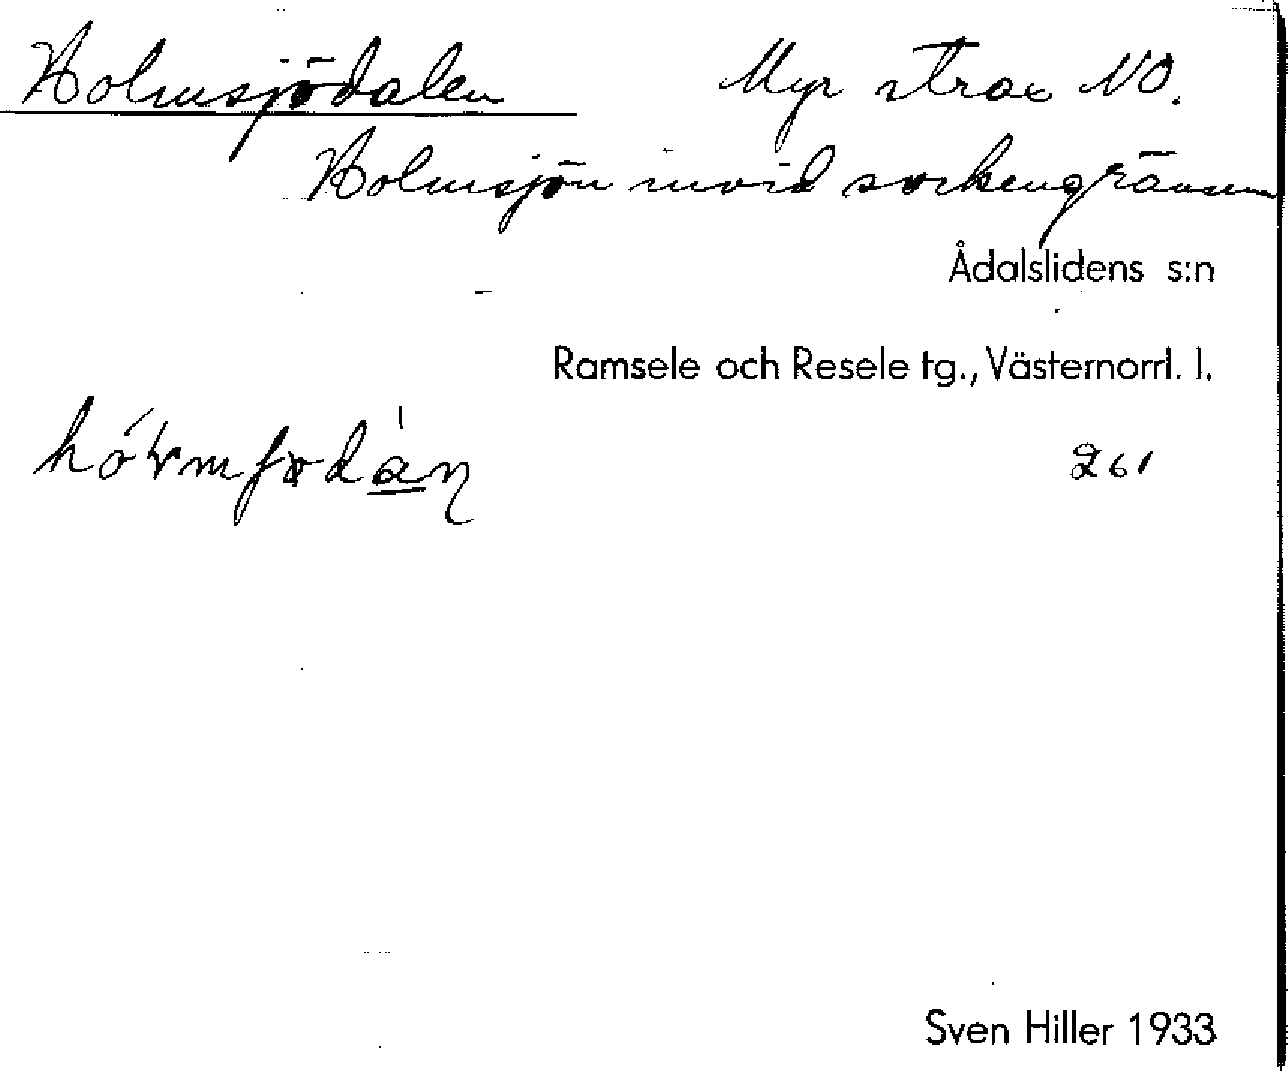 Holmsjödalen Myr strax NO.
Holmsjön invid sockengränsen
Ådalslidens s:n
Ramsele och Resele tg., Västernorrl. l.
261
Sven Hiller 1933